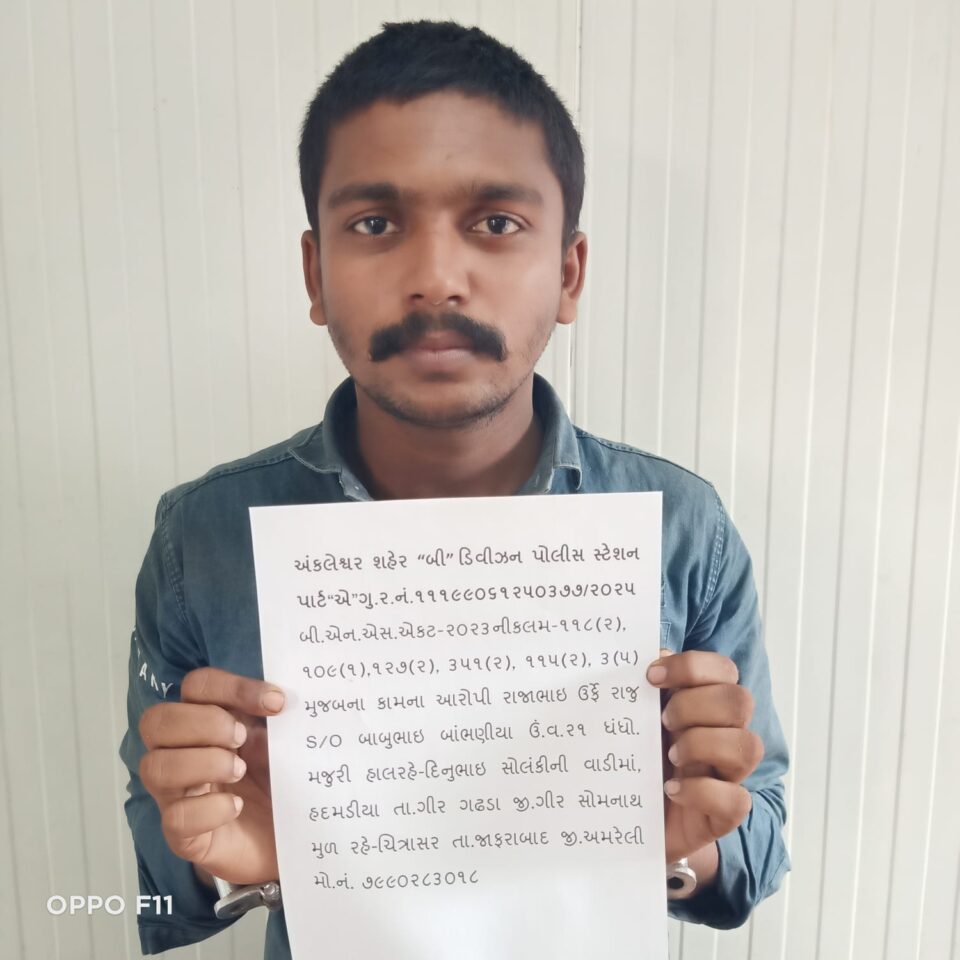 અંકલેશ્વર શહેર “બી” ડિવીઝન પોલીસ સ્ટેશન
પાર્ટ“એ”ગુ.ર.નં.૧૧૧૯૯૦૬૧૨૫૦૩૭૭/૨૦૨૫
બી.એન.એસ.એકટ-૨૦૨૩નીકલમ-૧૧૮(૨),
૧૦૯(૧),૧૨૭(૨), ૩૫૧(૨), ૧૧૫(૨), ૩(૫)
મુજબના કામના આરોપી રાજાભાઇ ઉર્ફે રાજુ
S/O બાબુભાઇ બાંભણીયા ઉં.વ.૨૧ ધંધો.
મજુરી હાલરહે-દિનુભાઇ સોલંકીની વાડીમાં,
હદમડીયા તા.ગીર ગઢડા જી.ગીર સોમનાથ
મુળ રહે-ચિત્રાસર તા.જાફરાબાદ જી.અમરેલી
મો.નં. ૭૯૯૦૨૮૩૦૧૮
OPPO F11